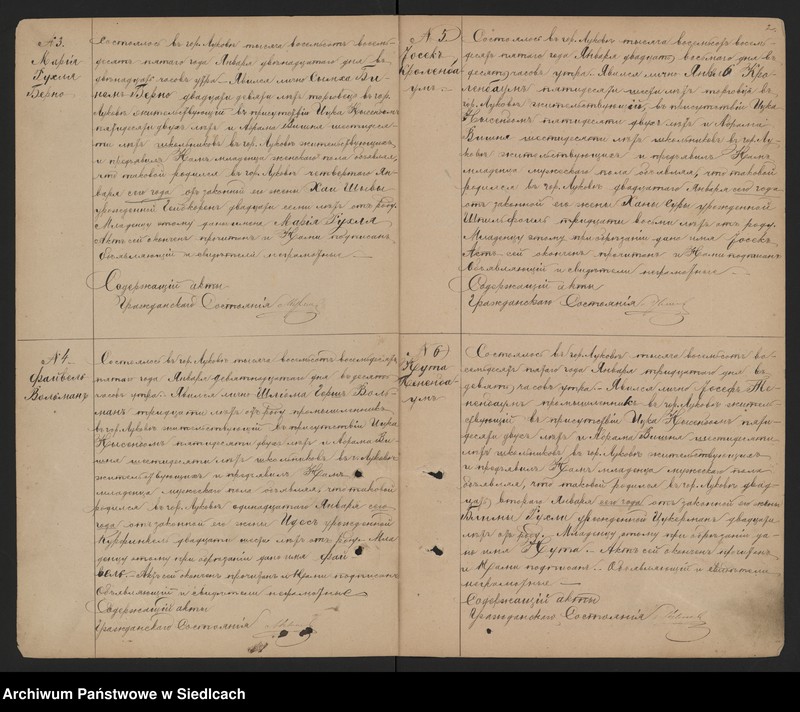 № 3.
Марія
Гухля
Берно
Состоялось въ гор. Луковѣ тысяча восемьсотъ восемь-
десятъ пятаго года Января двѣнадцатаго дня въ
двѣнадцать часовъ утра. Явился лично Симха Би-
Берно двадцати девяти лѣтъ торговецъ въ гор.
Луковѣ жительствующій въ присутствіи Ицка
пятидесяти двухъ лѣтъ и Абрама Вишня шестидеся-
ти лѣтъ школьниковъ въ гор. Луковѣ жительствующихъ
и предъявилъ Намъ младенца женскаго пола объявляя,
что таковой родился въ гор. Луковѣ четвертаго Ян-
варя сего года отъ законной его жены Хаи Шивы
урожденной двадцати семи лѣтъ отъ роду.
Младенцу этому дано имя Марія Гухля
Актъ сей оконченъ прочитанъ и Нами подписанъ
Объявляющій и свидѣтели неграмотные
Содержащій акты
Гражданскаго Состоянія
№ 4.
Файвель
Вольманъ
Состоялось въ гор. Луковѣ тысяча восемьсотъ восемьдесятъ
пятаго года Января девятнадцатаго дня въ десять
часовъ утра. Явился лично Шлёма Гершъ Воль-
манъ тридцати лѣтъ отъ роду промышленникъ
въ гор. Луковѣ жительствующій въ присутствіи Ицка
пятидесяти двухъ лѣтъ и Абрама Ви-
шня шестидесяти лѣтъ школьниковъ въ г. Луковѣ
жительствующихъ и предъявилъ Намъ
младенца мужескаго пола объявляя, что таковой
родился въ гор. Луковѣ одинадцатаго Января сего
года отъ законной его жены Идесъ урожденной
двадцати шести лѣтъ отъ роду. Мла-
денцу этому при обрѣзаніи дано имя Фай-
вель. Актъ сей оконченъ прочитанъ и Нами подписанъ
Объявляющій и свидѣтели неграмотные
Содержащій акты
Гражданскаго Состоянія
2.
№ 5.
Іосекъ
Кроленба-
умъ
Состоялось въ гор. Луковѣ тысяча восемьсотъ восемь-
десятъ пятаго года Января двадцать восьмаго дня въ
десять часовъ утра. Явился лично Янкель Кра-
ленбаумъ пятидесяти шести лѣтъ торговецъ въ
гор. Луковѣ жительствующій, въ присутствіи Ицка
пятидесяти двухъ лѣтъ и Абрама
Вишня шестидесяти лѣтъ школьниковъ въ гор. Лу-
ковѣ жительствующихъ и предъявилъ Намъ
младенца мужескаго пола объявляя, что таковой
родился въ гор. Луковѣ двадцатаго Января сего года
отъ законной его жены Ханы Суры урожденной
Шпильфогель тридцати восьми лѣтъ отъ роду.
Младенцу этому при обрѣзаніи дано имя Іосекъ
Актъ сей оконченъ прочитанъ и Нами подписанъ
Объявляющій и свидѣтели неграмотные
Содержащій акты
Гражданскаго Состоянія
№ 6
Нута
Тененба-
умъ
Состоялось въ гор. Луковѣ тысяча восемьсотъ во-
семьдесятъ пятаго года Января тридцатаго дня въ
девять часовъ утра. Явился лично Іосефъ Те-
ненбаумъ промышленникъ въ гор. Луковѣ житель-
ствующій въ присутствіи Ицка пяти-
десяти двухъ лѣтъ и Абрама Вишня шестидесяти
лѣтъ школьниковъ въ гор. Луковѣ жительствующихъ
и предъявилъ Намъ младенца мужескаго пола
объявляя, что таковой родился въ гор. Луковѣ двад-
цать втораго Января сего года отъ законной его жены
Гухли урожденной Цукерманъ двадцати
лѣтъ отъ роду. Младенцу этому при обрѣзаніи да-
но имя Нута. Актъ сей оконченъ прочитанъ
и Нами подписанъ. Объявляющій и свидѣтели
неграмотные
Содержащій акты
Гражданскаго Состоянія
Archiwum Państwowe w Siedlcach